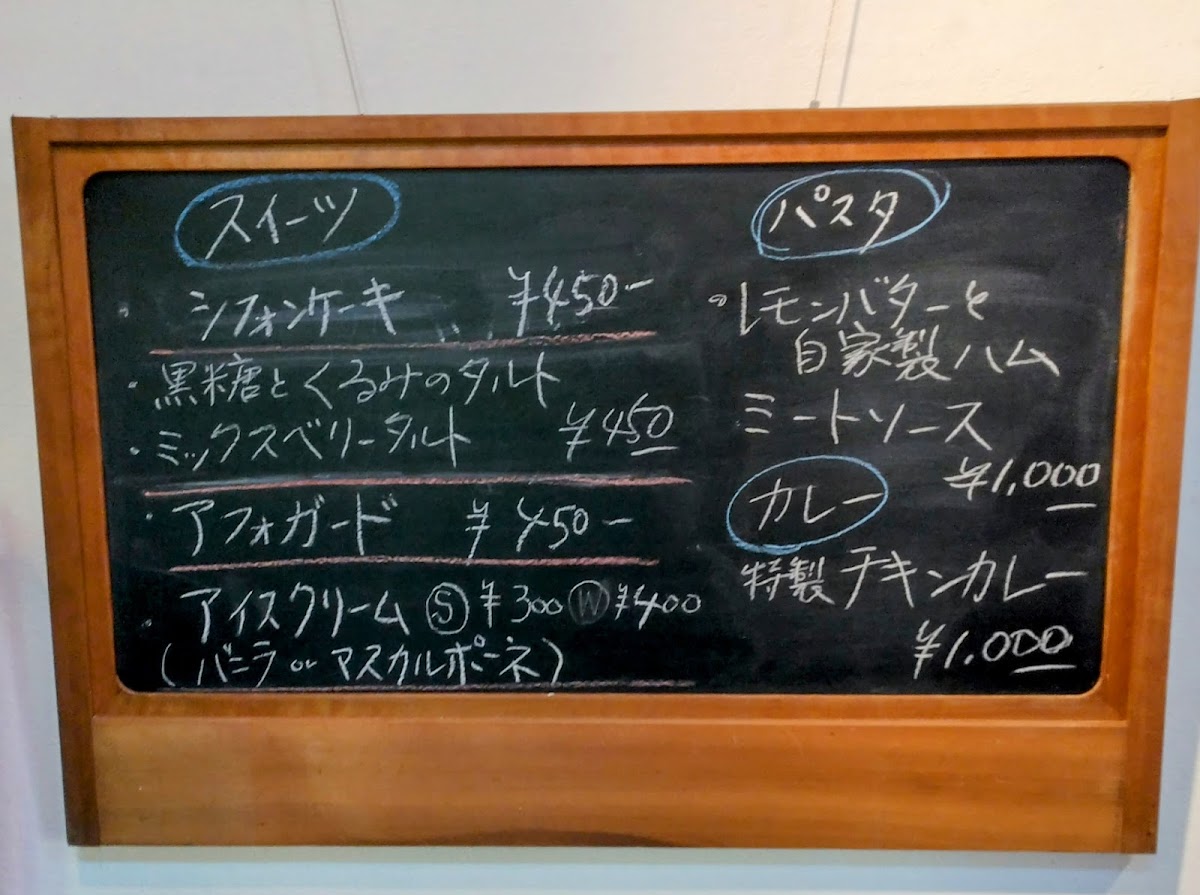 スイーツ
シフォンケーキ ¥450-
・黒糖とくるみのタルト
・ミックスベリータルト ¥450
アフォガード ¥450-
アイスクリーム Ⓢ ¥300 Ⓦ ¥400
(バニラ or マスカルポーネ)
パスタ
レモンバターと
自家製ハム
ミートソース
¥1,000
カレー
特製チキンカレー
¥1,000